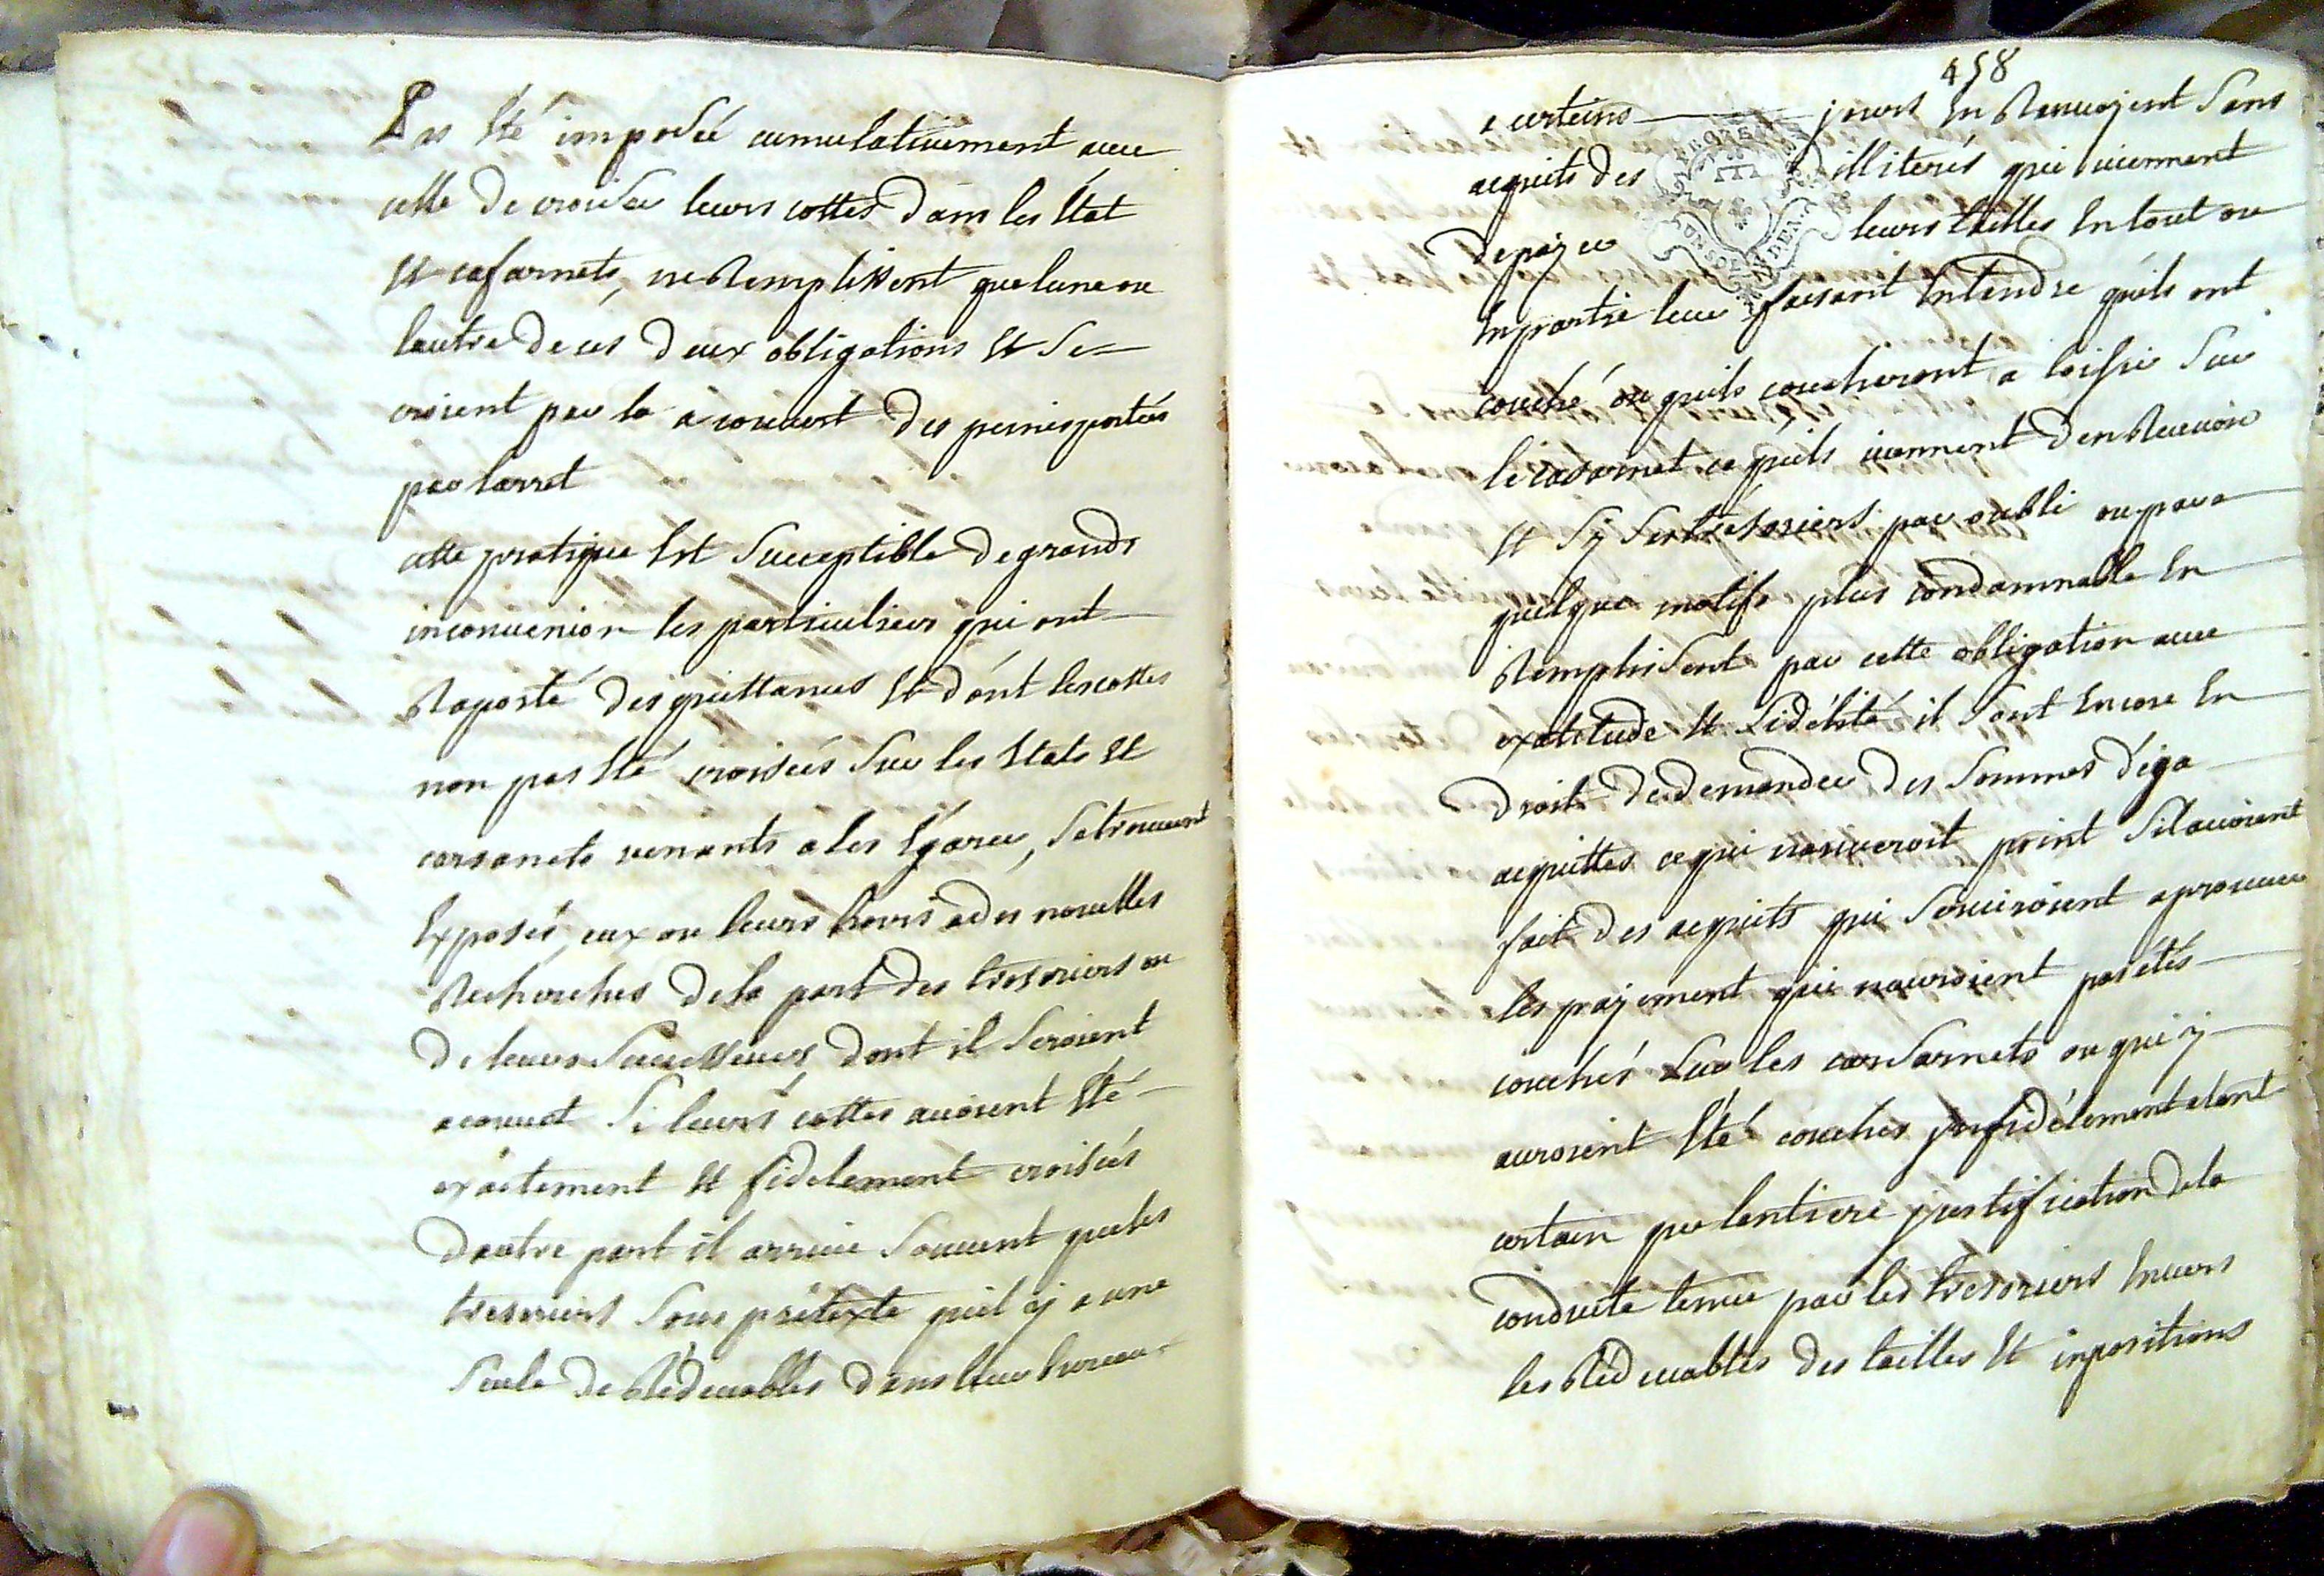 Pas Eté imposéé cumulativement avec
celle de croiser leurs cottes dans les Etat
Et casarnets, ne Remplissent que lune ou
lautre de ces deux obligations Et se
croient par la a couvert des peines portées
par larret
cette pratique Est susceptible de grands
inconvenion les particuliers qui ont
Raporté des quittances Et dont les cottes
non pas Eté croisées sur les Etats Et
carsanets venants a les Egarer, se trouvent
Exposés, eux ou leurs hoirs a des nouvelles
Recherches de la part des tresoriers ou
de leurs successeurs dont il seroient
a couvert si leurs cottes avoient Eté
exactement Et fidelement croisées
dautre part il arrive souvent que les
tresoriers sous prétexte quil y a une
seule de Rédevables dans leur bureau
458
a certains jours En Renvoyent sans
acquits des illiterés qui viennent
de payer leurs tailles En tout ou
En partie leur faisant Entendre quils ont
couché ou quils coucheront a loisir sur
le casarnet ce quils viennent den Recevoir
Et sy ses tresoriers par oubli ou par
quelque motifs plus condamnable En
Remplisent pas cette obligation avec
exatitude Et fidélité il sont Encore En
droit de demander des sommes déja
acquittes ce qui nariveroit point sil avoient
fait des acquits qui serviroient a prouver
les payement qui nauroient pas étés
couchés sur les carsarnets ou qui y
auroient Eté couches infidélement etant
certain que lentiere justification de la
conduite tenue par les tresoriers Envers
les Rédevables des tailles Et inpositions